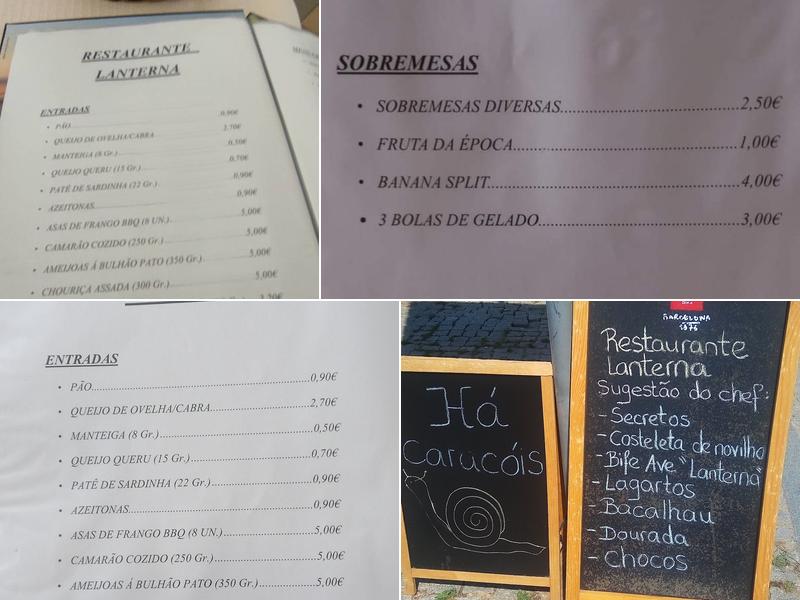 RESTAURANTE
LANTERNA
ENTRADAS
• PÃO 0,90€
• QUEIJO DE OVELHA/CABRA 2,70€
• MANTEIGA (8 Gr.) 0,50€
• QUEIJO QUERU (15 Gr.) 0,70€
• PATÊ DE SARDINHA (22 Gr.) 0,90€
• AZEITONAS 0,90€
• ASAS DE FRANGO BBQ (8 UN.) 5,00€
• CAMARÃO COZIDO (250 Gr.) 5,00€
• AMEIJOAS Á BULHÃO PATO (350 Gr.) 5,00€
• CHOURIÇA ASSADA (300 Gr.) 5,00€
SOBREMESAS
• SOBREMESAS DIVERSAS 2,50€
• FRUTA DA ÉPOCA 1,00€
• BANANA SPLIT 4,00€
• 3 BOLAS DE GELADO 3,00€
ENTRADAS
• PÃO 0,90€
• QUEIJO DE OVELHA/CABRA 2,70€
• MANTEIGA (8 Gr.) 0,50€
• QUEIJO QUERU (15 Gr.) 0,70€
• PATÊ DE SARDINHA (22 Gr.) 0,90€
• AZEITONAS 0,90€
• ASAS DE FRANGO BBQ (8 UN.) 5,00€
• CAMARÃO COZIDO (250 Gr.) 5,00€
• AMEIJOAS À BULHÃO PATO (350 Gr.) 5,00€
Há
Caracóis
BARCELONA
1876
Restaurante
Lanterna
Sugestão do chef:
- Secretos
- Costeleta de novilho
- Bife Ave "Lanterna"
- Lagartos
- Bacalhau
- Dourada
- Chocos